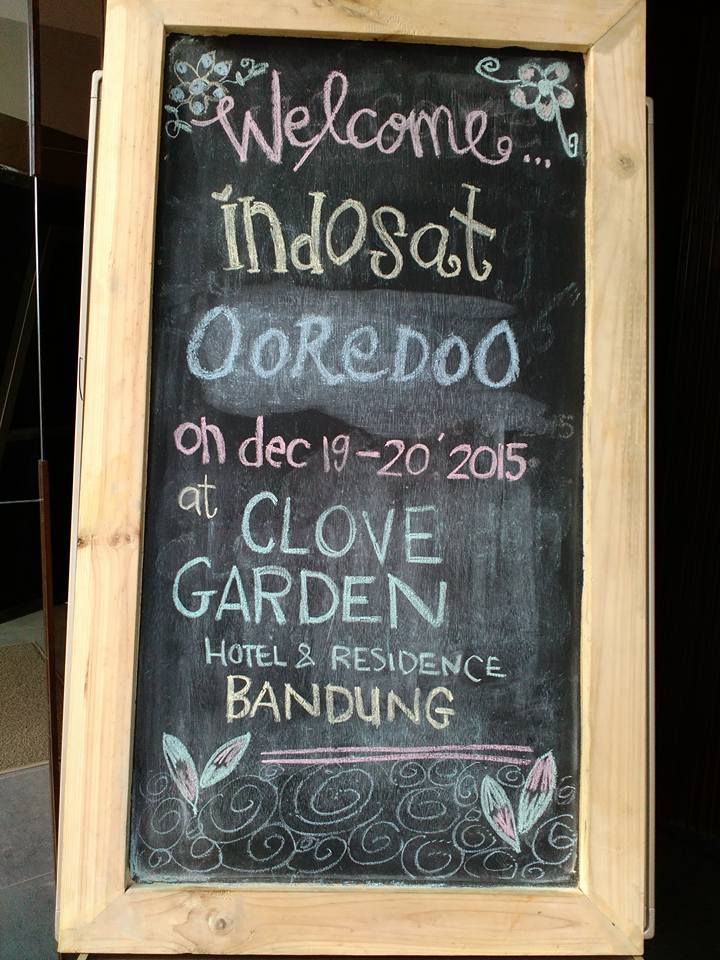 Welcome...
indosat
OOReDOO
on dec 19-20 '2015
at
CLOVE
GARDEN
HOTEL & RESIDENCE
BANDUNG